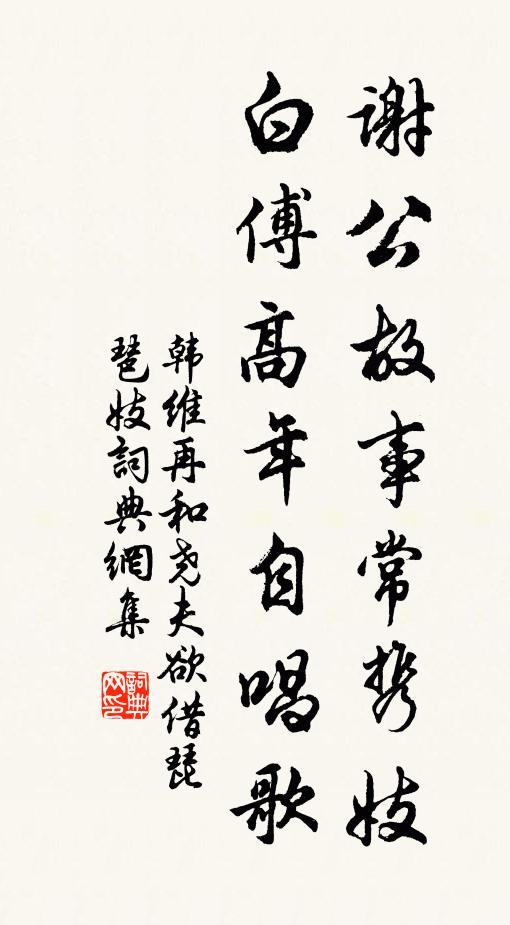 谢公故事常携妓
白傅高年自唱歌
韩维再和尧夫欲借琵
琶妓詞典網集
詞典网印